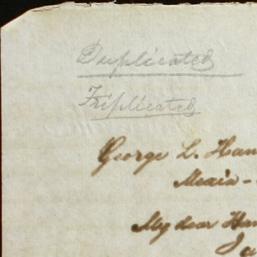 Duplicated
Triplicated
George L. Han
Mexia -
My dear Han